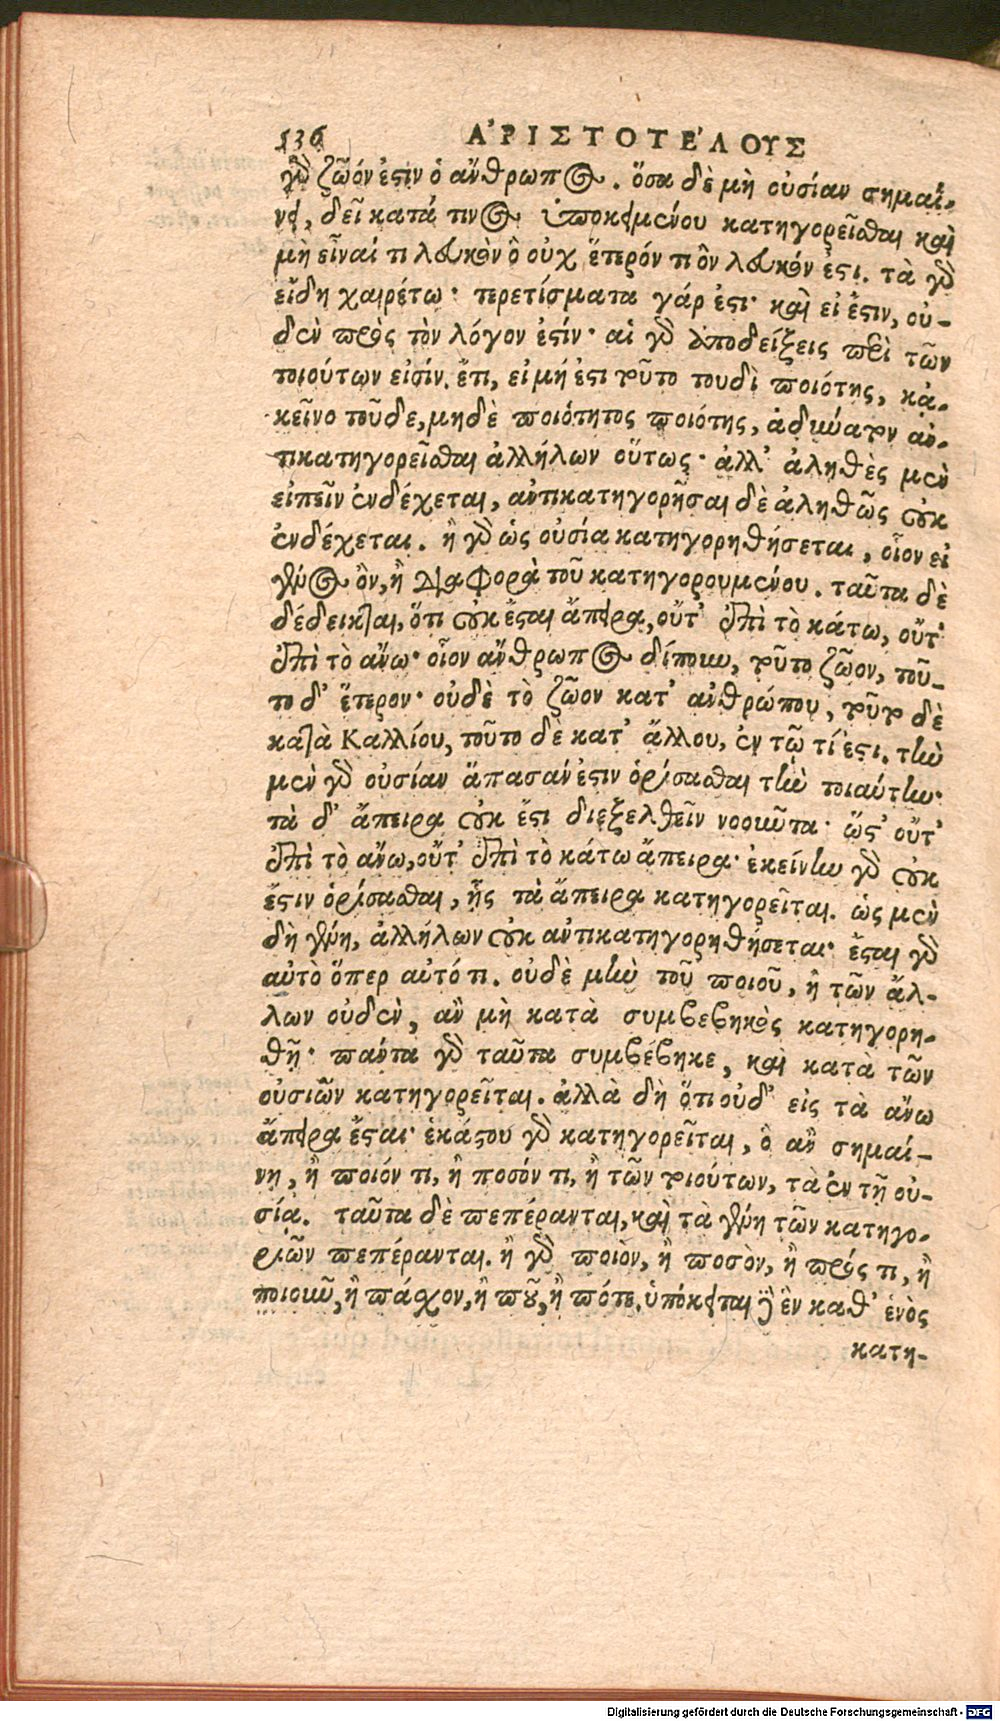 136 ἈΡΙΣΤΟΤΈΛΟΥΣ
γὰρ ζῶόν ἐστιν ὁ ἄνθρωπος. ὅσα δὲ μὴ οὐσίαν σημαί-
νει, δεῖ κατά τινος ὑποκειμένου κατηγορεῖσθαι καὶ
μὴ εἶναί τι λευκὸν ὃ οὐχ ἕτερόν τι ὂν λευκόν ἐστι. τὰ γὰρ
εἴδη χαιρέτω· τερετίσματα γάρ ἐστι· καὶ εἰ ἔστιν, οὐ-
δὲν πρὸς τὸν λόγον ἐστίν· αἱ γὰρ ἀποδείξεις περὶ τῶν
τοιούτων εἰσίν. ἔτι, εἰ μή ἐστι τοῦτο τουδὶ ποιότης, κἀ-
κεῖνο τοῦδε, μηδὲ ποιότητος ποιότης, ἀδύνατον ἀν-
τικατηγορεῖσθαι ἀλλήλων οὕτως· ἀλλ' ἀληθὲς μὲν
εἰπεῖν ἐνδέχεται, ἀντικατηγορῆσαι δὲ ἀληθῶς οὐκ
ἐνδέχεται. ἢ γὰρ ὡς οὐσία κατηγορηθήσεται, οἷον εἰ
γένος ὂν, ἢ διαφορὰ τοῦ κατηγορουμένου. ταῦτα δὲ
δέδεικται, ὅτι οὐκ ἔσται ἄπειρα, οὔτ' ἐπὶ τὸ κάτω, οὔτ'
ἐπὶ τὸ ἄνω· οἷον ἄνθρωπος δίπουν, τοῦτο ζῶον, τοῦ-
το δ' ἕτερον· οὐδὲ τὸ ζῶον κατ' ἀνθρώπου, τοῦτο δὲ
κατὰ Καλλίου, τοῦτο δὲ κατ' ἄλλου, ἐν τῷ τί ἐστι. τὴν
μὲν γὰρ οὐσίαν ἅπασαν ἔστιν ὁρίσασθαι τὴν τοιαύτην·
τὰ δ' ἄπειρα οὐκ ἔστι διεξελθεῖν νοοῦντα· ὥστ' οὔτ'
ἐπὶ τὸ ἄνω, οὔτ' ἐπὶ τὸ κάτω ἄπειρα· ἐκείνην γὰρ οὐκ
ἔστιν ὁρίσασθαι, ἧς τὰ ἄπειρα κατηγορεῖται. ὡς μὲν
δὴ γένη, ἀλλήλων οὐκ ἀντικατηγορηθήσεται· ἔσται γὰρ
αὐτὸ ὅπερ αὐτό τι. οὐδὲ μὴν τοῦ ποιοῦ, ἢ τῶν ἄλ-
λων οὐδὲν, ἂν μὴ κατὰ συμβεβηκὸς κατηγορη-
θῇ· πάντα γὰρ ταῦτα συμβέβηκε, καὶ κατὰ τῶν
οὐσιῶν κατηγορεῖται. ἀλλὰ δὴ ὅτι οὐδ' εἰς τὰ ἄνω
ἄπειρα ἔσται· ἑκάστου γὰρ κατηγορεῖται, ὃ ἂν σημαί-
νῃ, ἢ ποιόν τι, ἢ ποσόν τι, ἢ τῶν τοιούτων, τὰ ἐν τῇ οὐ-
σίᾳ. ταῦτα δὲ πεπέρανται, καὶ τὰ γένη τῶν κατηγο-
ριῶν πεπέρανται. ἢ γὰρ ποιὸν, ἢ ποσὸν, ἢ πρός τι, ἢ
ποιοῦν, ἢ πάσχον, ἢ ποῦ, ἢ πότε. ὑπόκειται δὴ ἓν καθ' ἑνὸς
κατη-
Digitalisierung gefördert durch die Deutsche Forschungsgemeinschaft - DFG